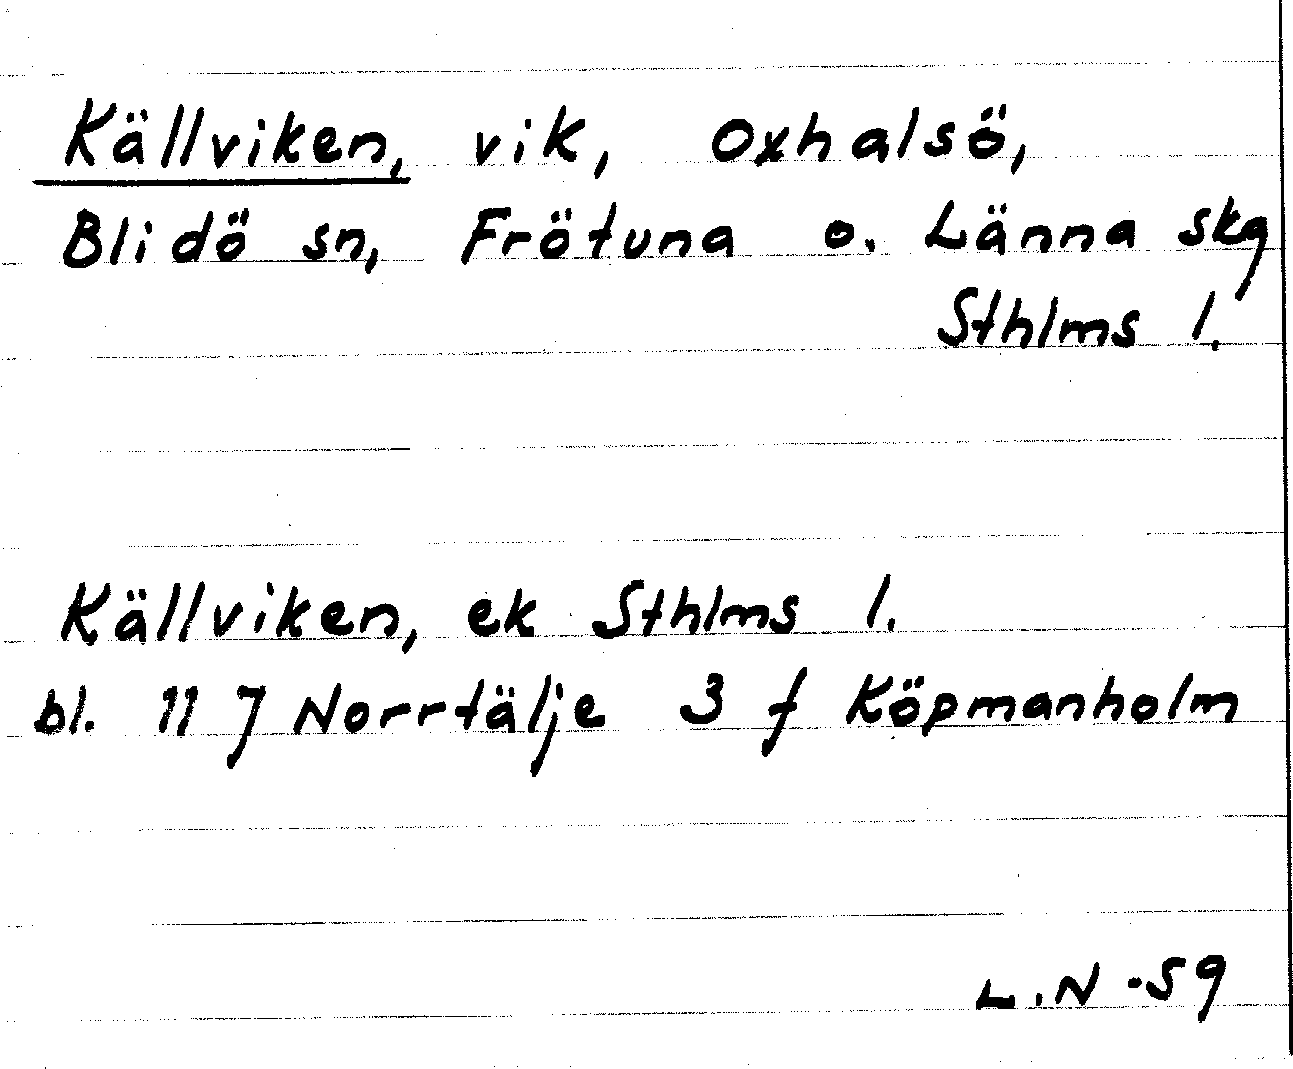 Källviken, vik, Oxhalsö,
Blidö sn, Frötuna o. Länna skg
Sthlms l.
Källviken, ek Sthlms l.
bl. 11 J Norrtälje 3 f Köpmanholm
L.N -59